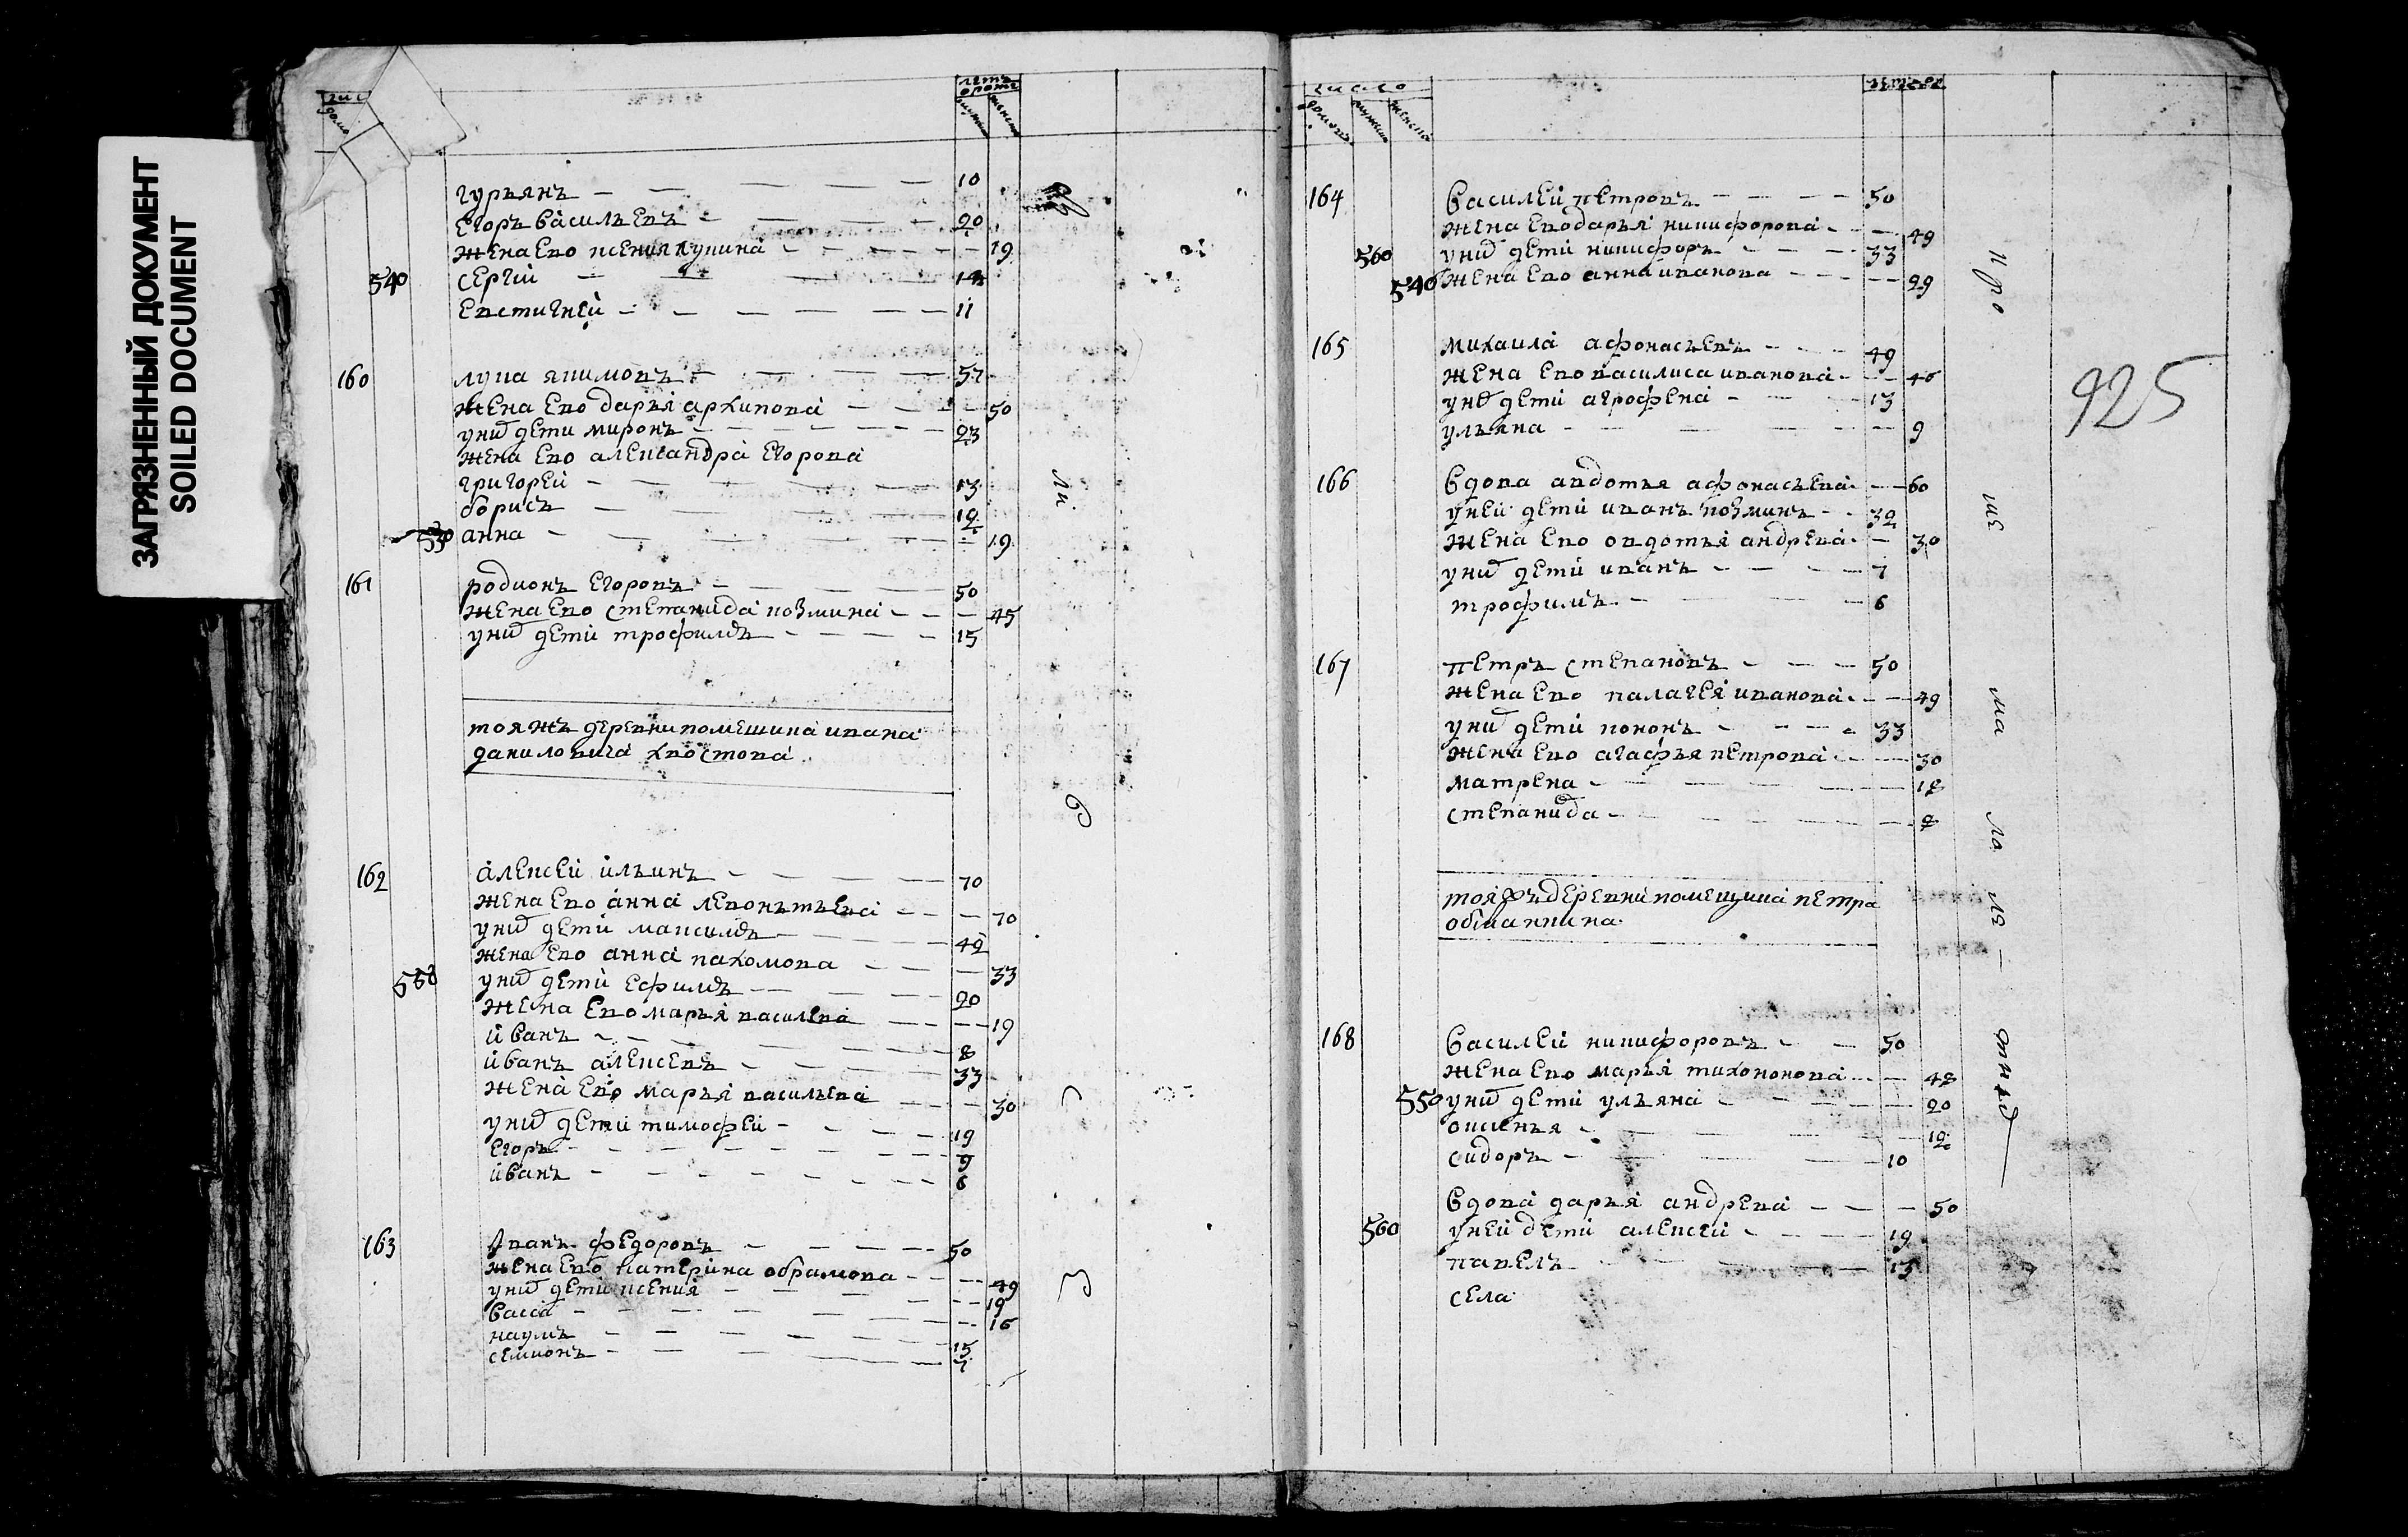 ЗАГРЯЗНЕННЫЙ ДОКУМЕНТ
SOILED DOCUMENT
летъ
гурьянъ 10
Егоръ Васильевъ 20
жена Ево ксения лукина 19
540 Сергий
Евстигней 11
160 лука якимовъ 57
жена Ево дарья архипова 50
у них дети миронъ 23
жена Ево александра Егорова
григорей 13
борисъ 12
530 анна 19
161 родионъ Егоровъ 50
жена Ево степанида козмина 45
у них дети трофимъ 15
тояжъ деревни помещика ивана
даниловича хвостова
162 алексей ильинъ 70
жена Ево анна леконътьева 70
у них дети максимъ 42
жена Ево анна пахомова 33
550 у них дети Ефимъ 20
жена Ево марья василева 19
иванъ 8
иванъ алексевъ 33
жена Ево марья васильева 30
у них дети тимофей 19
Егоръ 9
иванъ 6
163 иванъ федоровъ 50
жена Ево катерина обрамова 49
у них дети ксения 19
Васса 16
наумъ 15
семионъ 7
число
164 Василей петровъ 50
жена Ево дарья никифорова 49
560 у них дети никифоръ 33
540 жена Ево анна иванова 29
165 михаила афонасьевъ 49
жена Ево василиса иванова 46
у них дети агрофена 13
ульяна 9
166 Вдова авдотья афонасьева 60
у ней дети иванъ козминъ 32
жена Ево овдотья андрева 30
у них дети иванъ 7
трофимъ 6
167 петръ степановъ 50
жена Ево палагея иванова 49
у них дети кононъ 33
жена Ево агафья петрова 30
матрена 18
степанида 8
тояжъ деревни помещика петра
168 Василей никифоровъ 50
жена Ево марья тихононова 48
550 у них дети ульяна 20
оксинья 12
сидоръ 10
Вдова дарья андрева 50
560 у ней дети алексей 19
павелъ 15
села
925